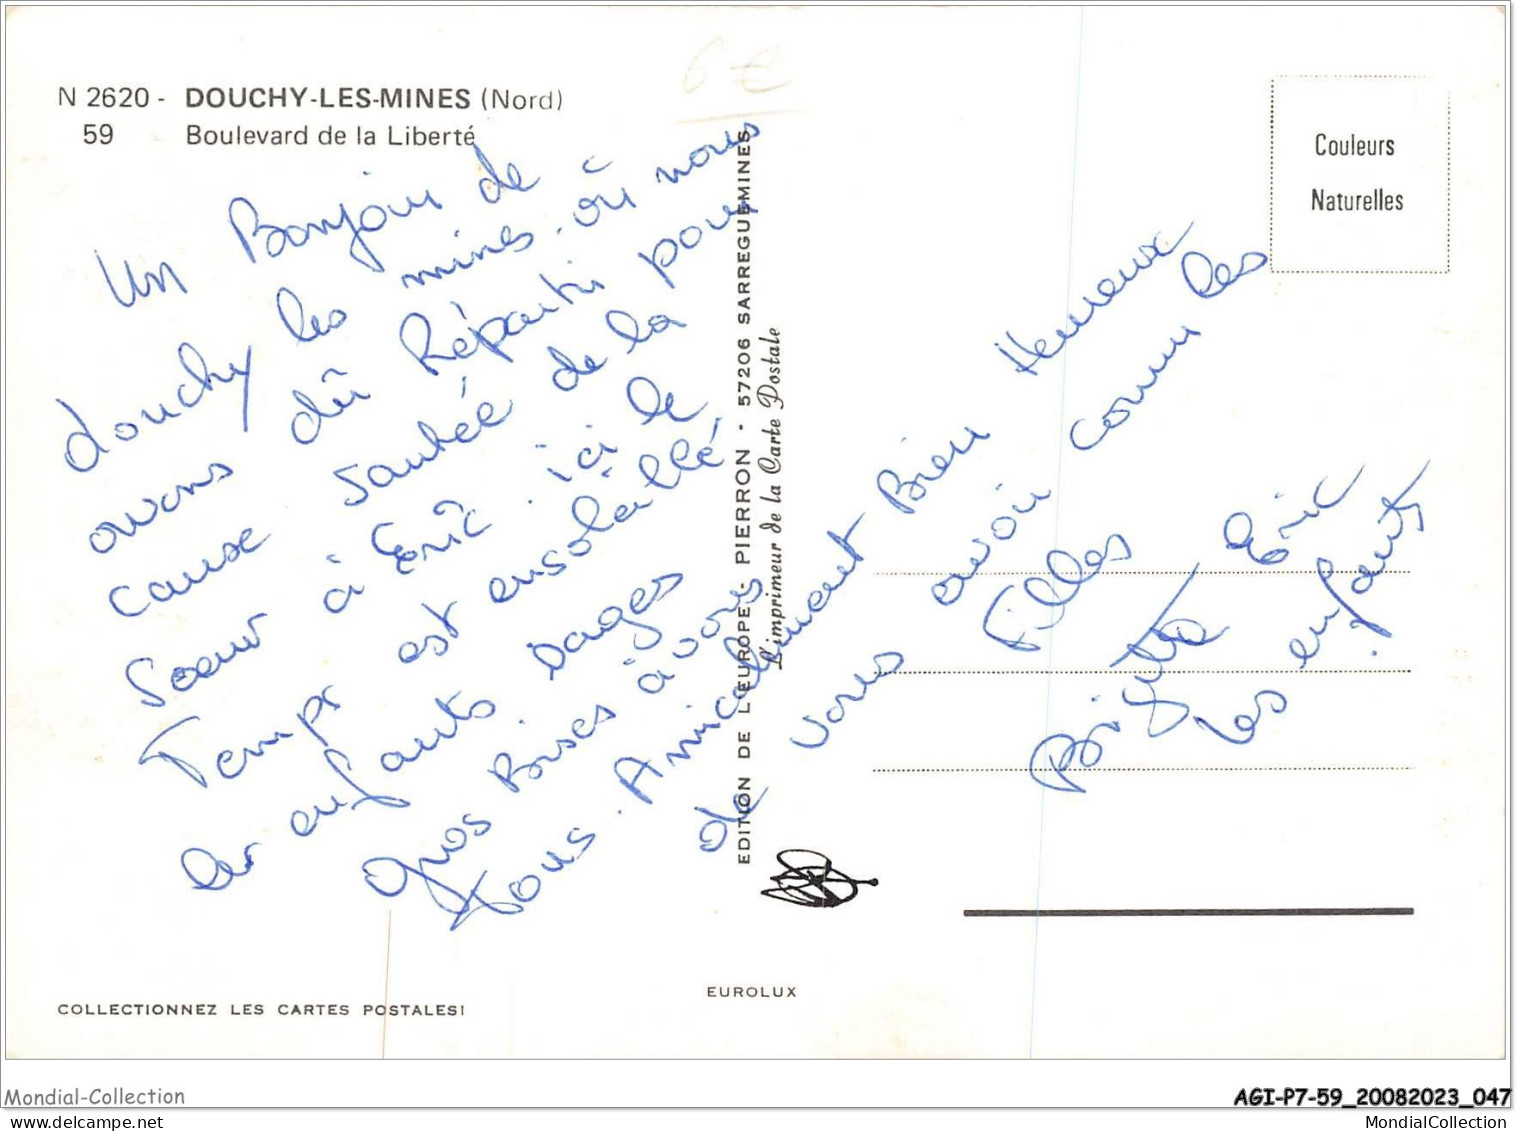 6€
N 2620 - DOUCHY-LES-MINES (Nord)
59 Boulevard de la Liberté
Couleurs
Naturelles
Un Bonjour de
douchy les mines. où nous
avons dû Répartir pour
cause santée de la
Soeur à Eric. ici le
Temps est ensoleillé
les enfants sages
gros Bises à vous
tous. Amicalement Bien Heureux
de vous avoir comme les
Filles
Brigitte Eric
Les enfants.
EDITION DE L'EUROPE - PIERRON - 57206 SARREGUEMINES
L'imprimeur de la Carte Postale
EUROLUX
COLLECTIONNEZ LES CARTES POSTALES!
Mondial-Collection
AGI-P7-59_20082023_047
Mondial-Collection.com
MondialCollection